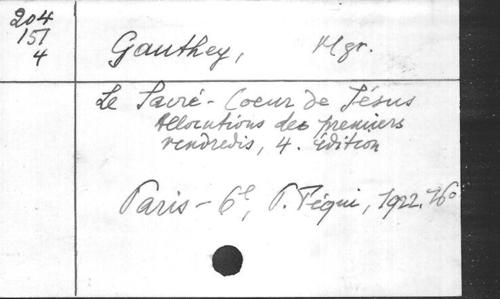 204
151
4
Gauthey, Mgr.
Le Sacré-Coeur de Jésus
Allocutions des premiers
vendredis, 4. édition
Paris-6e, P. Téqui, 1922. 16o